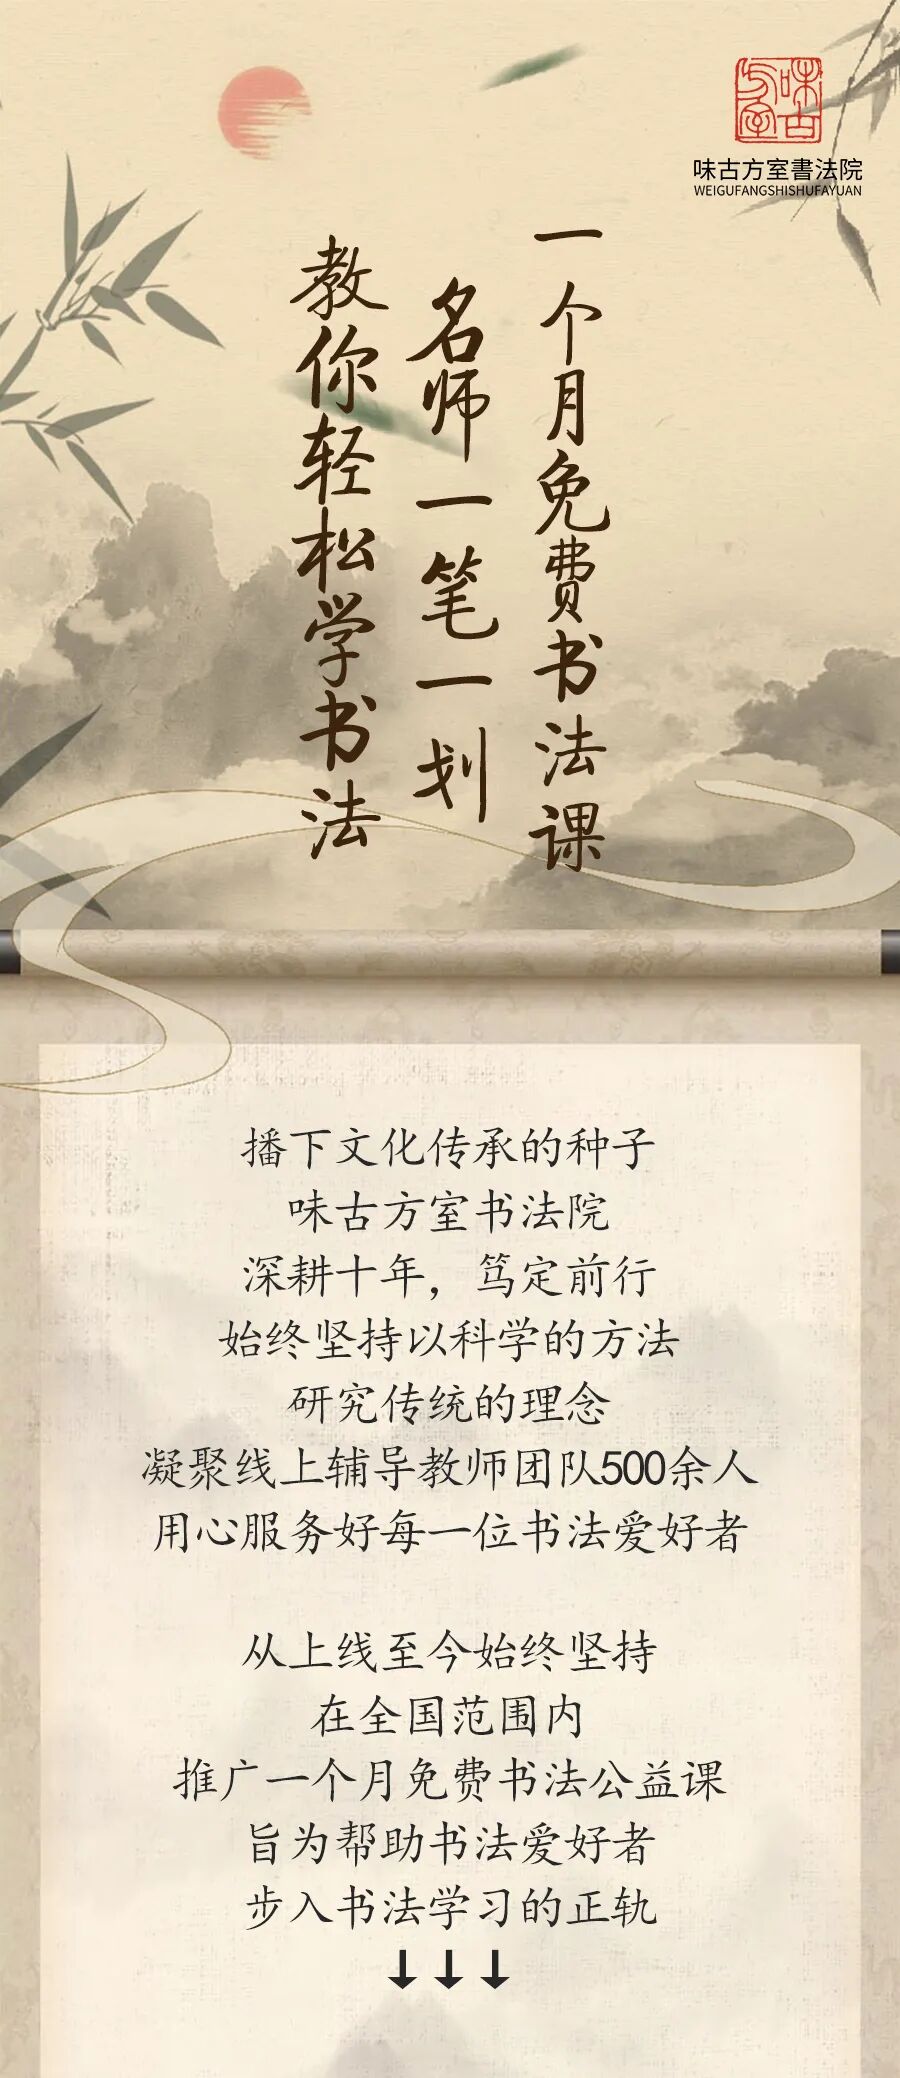 味古方室
味古方室書法院
WEIGUFANGSHISHUFAYUAN
一个月免费书法课
名师一笔一划
教你轻松学书法
播下文化传承的种子
味古方室书法院
深耕十年，笃定前行
始终坚持以科学的方法
研究传统的理念
凝聚线上辅导教师团队500余人
用心服务好每一位书法爱好者
从上线至今始终坚持
在全国范围内
推广一个月免费书法公益课
旨为帮助书法爱好者
步入书法学习的正轨
↓↓↓